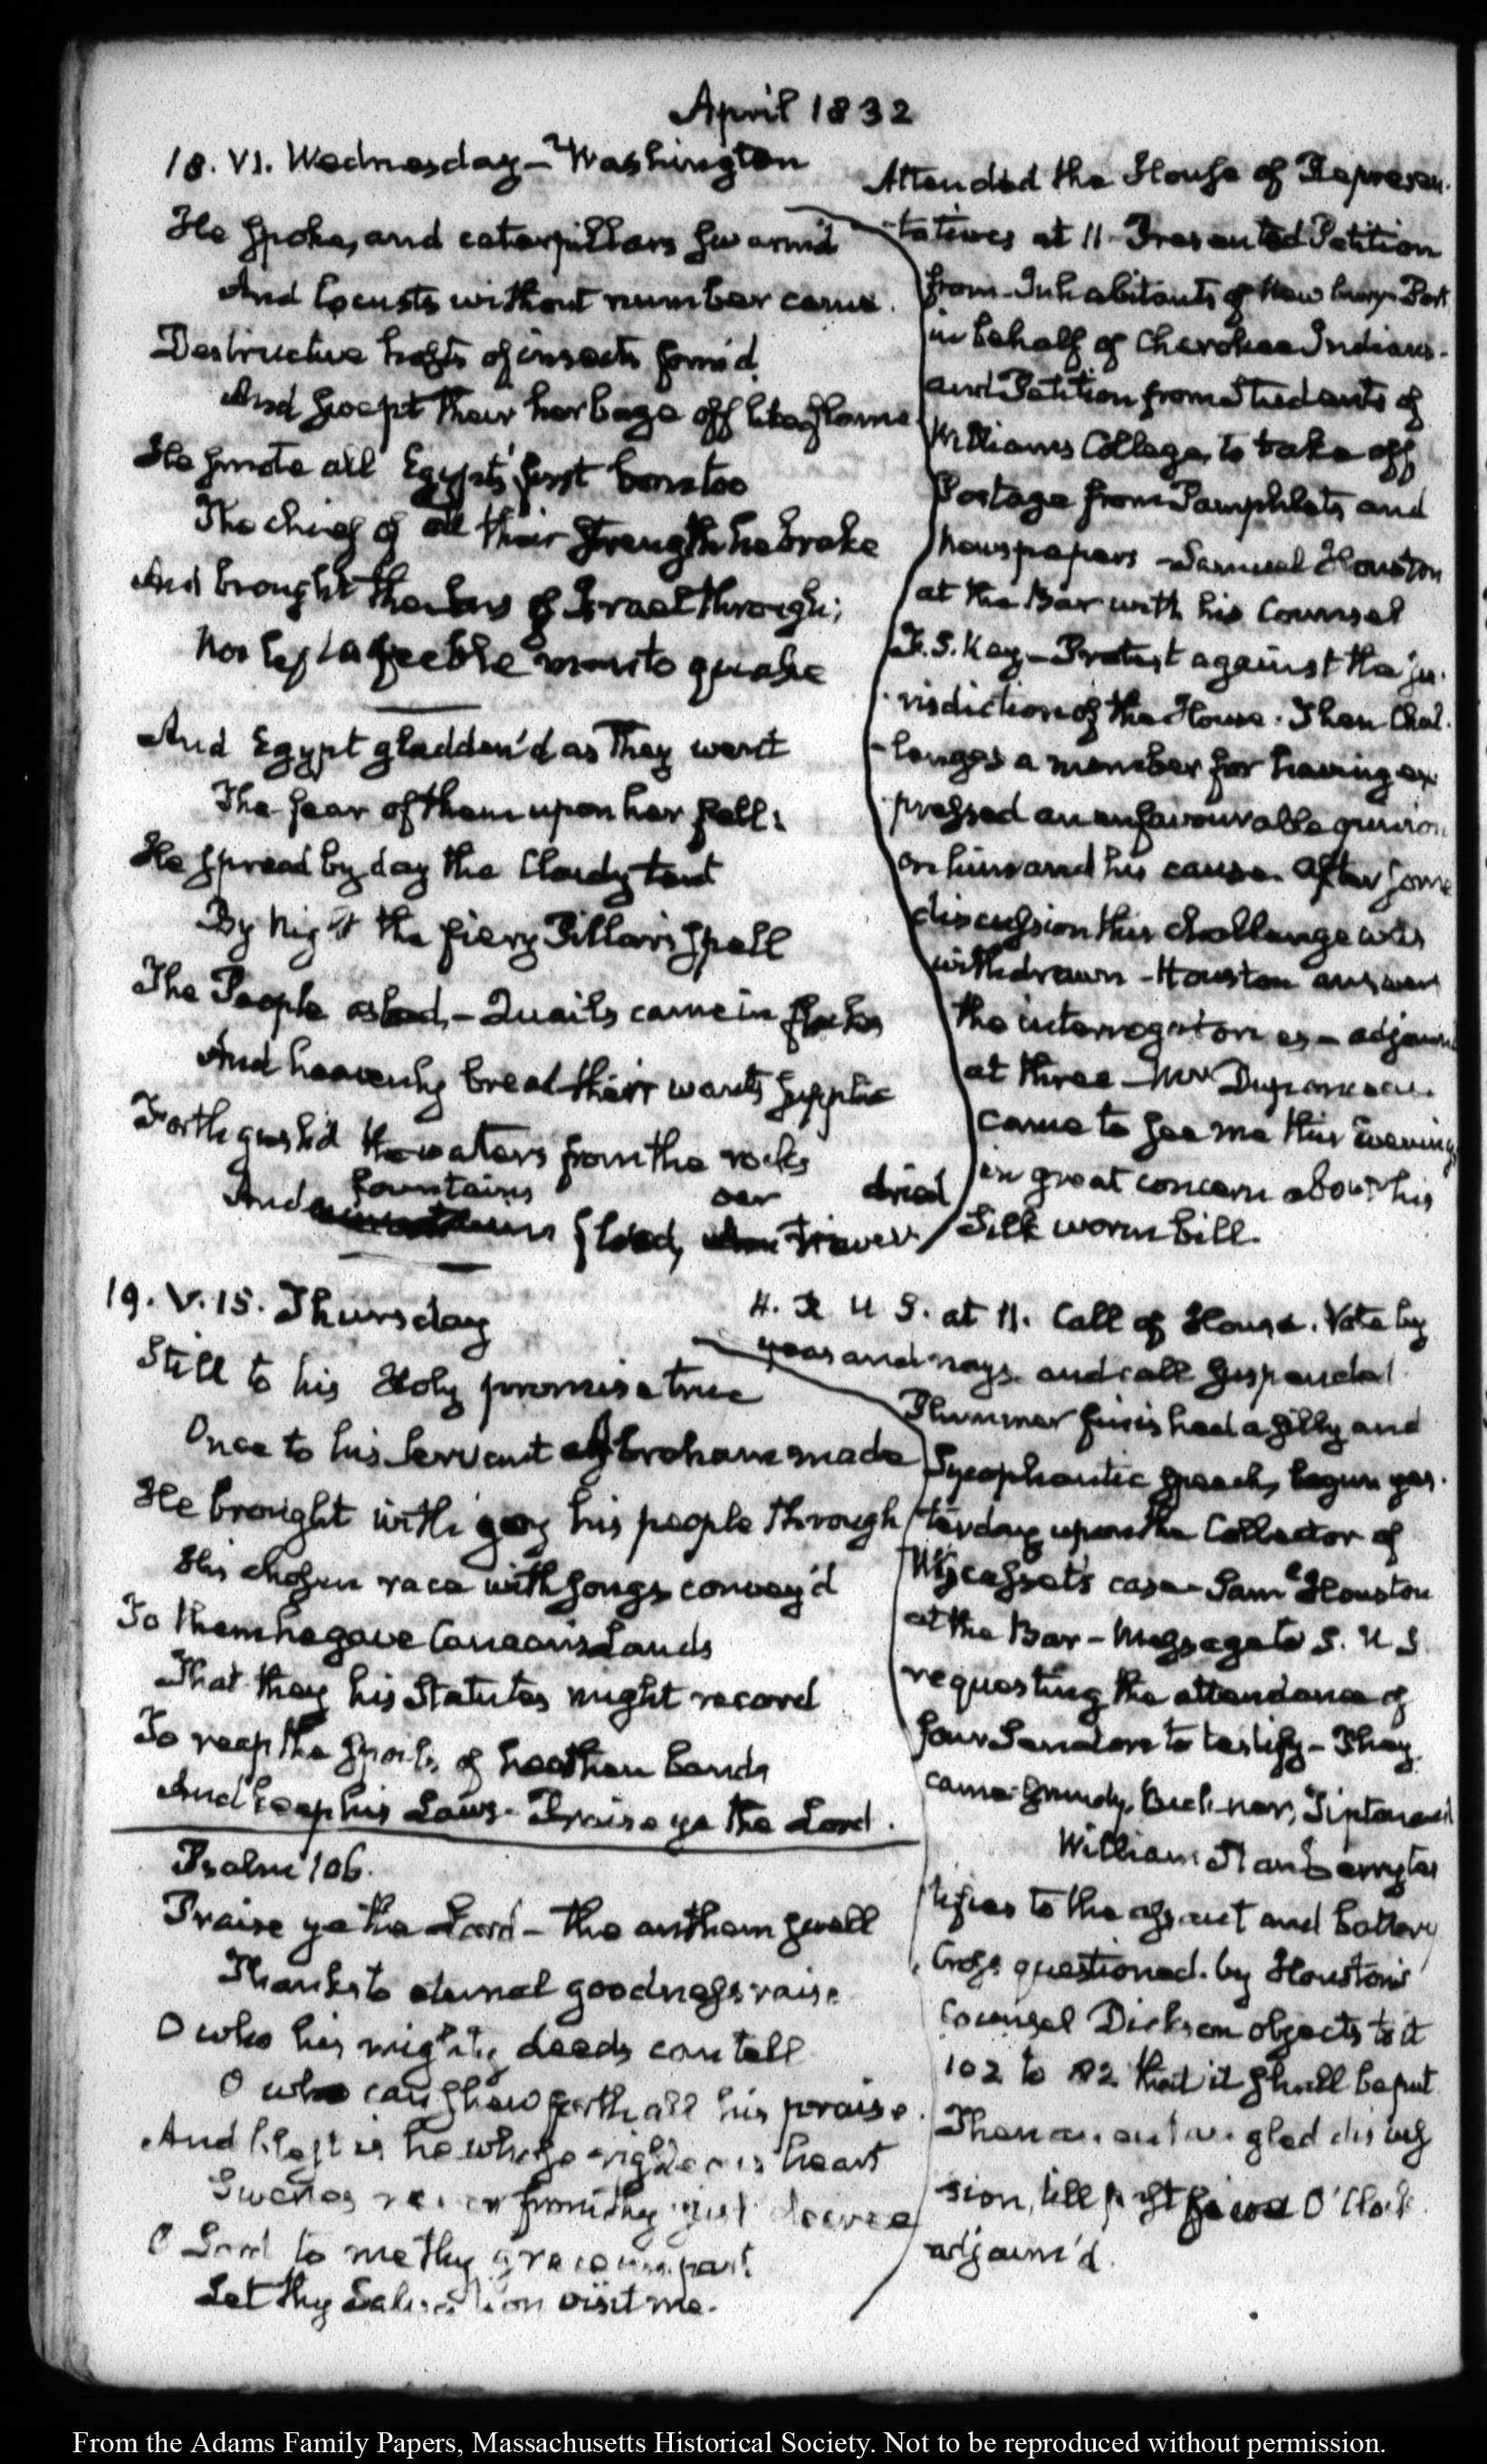 April 1832
18. VI. Wednesday - Washington
He spoke, and caterpillars swarm'd
And locusts without number came.
Destructive hosts of insects form'd
And swept their herbage off like flame
He smote all Egypt's first born too
The chief of all their strength he brake
And brought the Sons of Israel through;
Nor left a feeble man to quake
And Egypt gladden'd as they went
The fear of them upon her fell:
He spread by day the Cloudy tent
By Night the fiery Pillar's spell
The People asked, - Quails came in flocks
And heavenly bread their wants supplie
Forth gush'd the waters from the rocks
fountains oer dried
And flow'd, river
Attended the House of Represen-
-tatives at 11 - Presented Petition
from Inhabitants of Newbury-Port
in behalf of Cherokee Indians-
and Petition from Students of
Williams College, to take off
Postage from Pamphlets and
Newspapers - Samuel Houston
at the Bar with his Counsel
F. S. Key - Protest against the ju-
risdiction of the House. Then Chal-
-lenges a member for having ex
pressed an unfavourable opinion
on him and his cause. After some
discussion this challenge was
withdrawn - Houston answers
the interrogatories - adjourn
at three - Mr Duponceau
came to see me this Evening
in great concern about his
Silk worm bill.
19. V. 15. Thursday
Still to his Holy promise true
Once to his Servant Abraham made
He brought with joy his people through
His chosen race with songs convey'd
To them he gave Canaan's Lands
That they his Statutes might record
To reap the spoils of heathen bands
And keep his Laws - Praise ye the Lord.
Psalm 106.
Praise ye the Lord - the anthem swell
Thanks to eternal goodness raise
O who his mighty deeds can tell
O who can shew forth all his praise.
And blest is he whose righteous heart
Swerves never from thy just decree
O Lord to me thy grace impart
Let thy Salvation visit me.
H. R U S. at 11. Call of House. Vote by
yeas and nays and call suspended.
Plummer finished a silly and
Sycophantic speech, begun yes-
terday upon the Collector of
Wiscasset's case - Saml Houston
at the Bar - Message to S. U S.
requesting the attendance of
four Senators to testify - They
came Grundy, Buckner, Tipton and
William Stanberry tes
tifies to the assault and battery
Cross questioned by Houston's
Counsel Dickson objects to it
102 to 82 that it shall be put
Then an entangled discus
sion, till past O'Clock
adjourn'd.
From the Adams Family Papers, Massachusetts Historical Society. Not to be reproduced without permission.